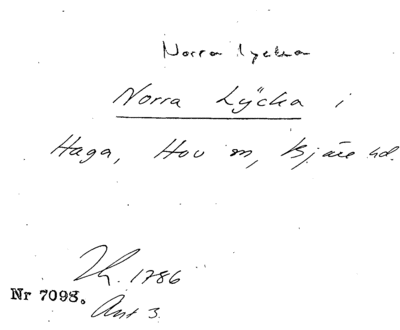 Norra lycka
Norra Lÿcka i
Haga, Hov sn, Bjäre hd.
Lh. 1786
Nr 7098.
Ant 3.